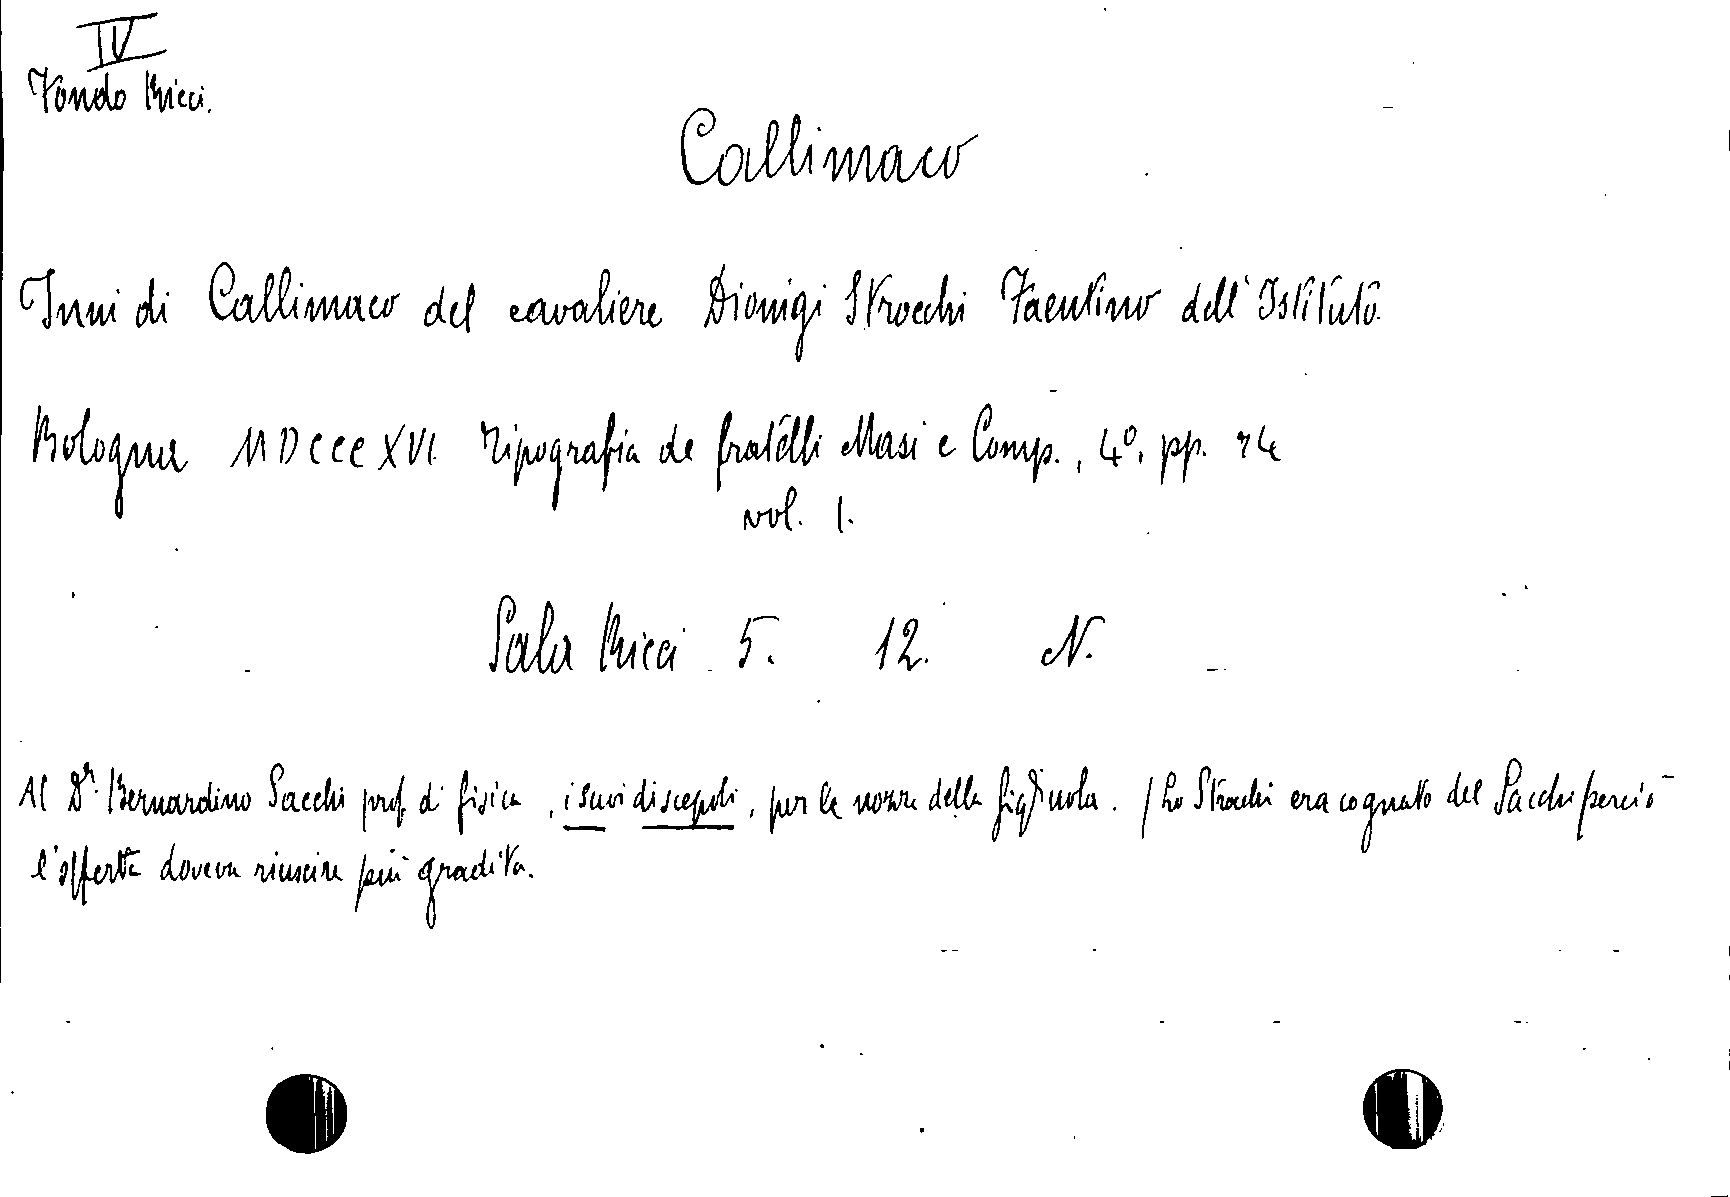 IV
Fondo Ricci.
Callimaco
Inni di Callimaco del cavaliere Dionigi Strocchi Faentino dell'Istituto.
Bologna MDCCCXVI. Tipografia de fratelli Masi e Comp., 4°, pp. 74
vol. 1.
Sala Ricci 5. 12. N.
Al Dr. Bernardino Sacchi prof. di fisica, i suoi discepoli, per le nozze della figliuola. / Lo Strocchi era cognato del Sacchi perciò
l'offerta doveva riuscire più gradita.